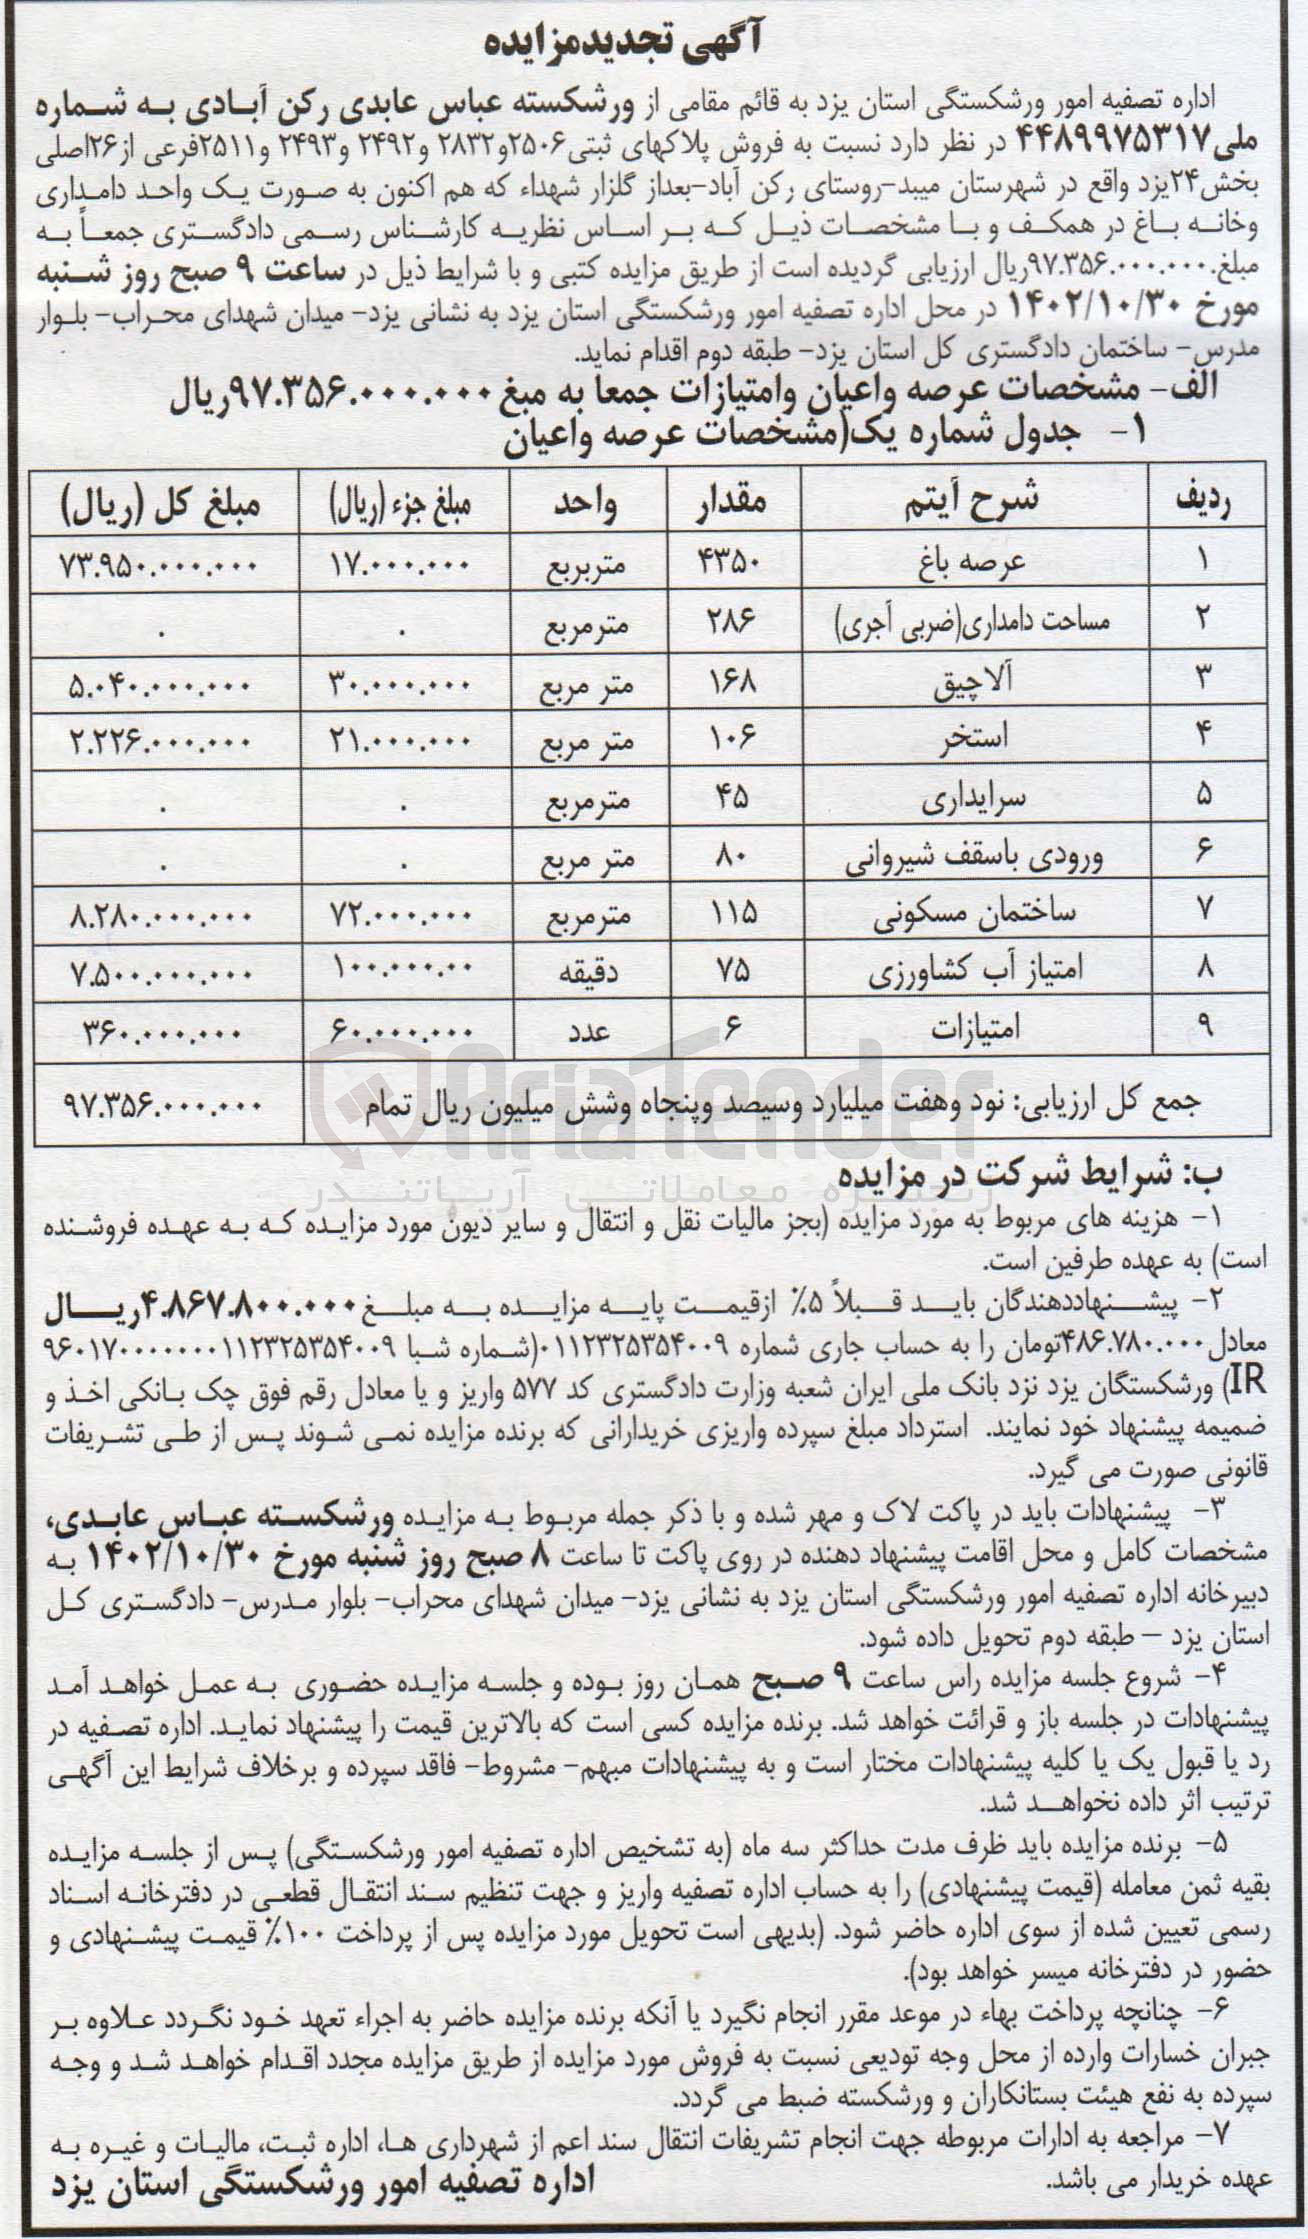 آگهی تجدیدمزایده
اداره تصفیه امور ورشکستگی استان یزد به قائم مقامی از ورشکسته عباس عابدی رکن آبادی به شماره
ملی۴۴۸۹۹۷۵۳۱۷ در نظر دارد نسبت به فروش پلاکهای ثبتی۲۵۰۶و۲۸۳۲ و۲۴۹۲ و۲۴۹۳ و۲۵۱۱فرعی از۲۶اصلی
بخش۲۴یزد واقع در شهرستان میبد-روستای رکن آباد-بعداز گلزار شهداء که هم اکنون به صورت یک واحد دامداری
وخانه باغ در همکف و با مشخصات ذیل که بر اساس نظریه کارشناس رسمی دادگستری جمعاً به
مبلغ۹۷.۳۵۶.۰۰۰.۰۰۰ریال ارزیابی گردیده است از طریق مزایده کتبی و با شرایط ذیل در ساعت ۹ صبح روز شنبه
مورخ ۱۴۰۲/۱۰/۳۰ در محل اداره تصفیه امور ورشکستگی استان یزد به نشانی یزد- میدان شهدای محراب- بلوار
مدرس- ساختمان دادگستری کل استان یزد- طبقه دوم اقدام نماید.
الف- مشخصات عرصه واعیان وامتیازات جمعا به مبغ ۹۷.۳۵۶.۰۰۰.۰۰۰ریال
۱- جدول شماره یک(مشخصات عرصه واعیان
ردیف شرح آیتم مقدار واحد مبلغ جزء (ریال) مبلغ کل (ریال)
۱ عرصه باغ ۴۳۵۰ متربربع ۱۷.۰۰۰.۰۰۰ ۷۳.۹۵۰.۰۰۰.۰۰۰
۲ مساحت دامداری(ضربی آجری) ۲۸۶ مترمربع ۰ ۰
۳ آلاچیق ۱۶۸ متر مربع ۳۰.۰۰۰.۰۰۰ ۵.۰۴۰.۰۰۰.۰۰۰
۴ استخر ۱۰۶ متر مربع ۲۱.۰۰۰.۰۰۰ ۲.۲۲۶.۰۰۰.۰۰۰
۵ سرایداری ۴۵ مترمربع ۰ ۰
۶ ورودی باسقف شیروانی ۸۰ متر مربع ۰ ۰
۷ ساختمان مسکونی ۱۱۵ مترمربع ۷۲.۰۰۰.۰۰۰ ۸.۲۸۰.۰۰۰.۰۰۰
۸ امتیاز آب کشاورزی ۷۵ دقیقه ۱۰۰.۰۰۰.۰۰ ۷.۵۰۰.۰۰۰.۰۰۰
۹ امتیازات ۶ عدد ۶۰.۰۰۰.۰۰۰ ۳۶۰.۰۰۰.۰۰۰
جمع کل ارزیابی: نود وهفت میلیارد وسیصد وپنجاه وشش میلیون ریال تمام ۹۷.۳۵۶.۰۰۰.۰۰۰
AriaTender
زنجیره معاملاتی آریاتندر
ب: شرایط شرکت در مزایده
۱- هزینه های مربوط به مورد مزایده (بجز مالیات نقل و انتقال و سایر دیون مورد مزایده که به عهده فروشنده
است) به عهده طرفین است.
۲- پیشنهاددهندگان باید قبلاً ۵٪ ازقیمت پایه مزایده به مبلغ۴.۸۶۷.۸۰۰.۰۰۰ریال
معادل۴۸۶.۷۸۰.۰۰۰تومان را به حساب جاری شماره ۰۱۱۲۳۲۵۳۵۴۰۰۹(شماره شبا ۹۶۰۱۷۰۰۰۰۰۰۰۱۱۲۳۲۵۳۵۴۰۰۹
IR) ورشکستگان یزد نزد بانک ملی ایران شعبه وزارت دادگستری کد ۵۷۷ واریز و یا معادل رقم فوق چک بانکی اخذ و
ضمیمه پیشنهاد خود نمایند. استرداد مبلغ سپرده واریزی خریدارانی که برنده مزایده نمی شوند پس از طی تشریفات
قانونی صورت می گیرد.
۳- پیشنهادات باید در پاکت لاک و مهر شده و با ذکر جمله مربوط به مزایده ورشکسته عباس عابدی،
مشخصات کامل و محل اقامت پیشنهاد دهنده در روی پاکت تا ساعت ۸ صبح روز شنبه مورخ ۱۴۰۲/۱۰/۳۰ به
دبیرخانه اداره تصفیه امور ورشکستگی استان یزد به نشانی یزد- میدان شهدای محراب- بلوار مدرس- دادگستری کل
استان یزد – طبقه دوم تحویل داده شود.
۴- شروع جلسه مزایده راس ساعت ۹ صبح همان روز بوده و جلسه مزایده حضوری به عمل خواهد آمد
پیشنهادات در جلسه باز و قرائت خواهد شد. برنده مزایده کسی است که بالاترین قیمت را پیشنهاد نماید. اداره تصفیه در
رد یا قبول یک یا کلیه پیشنهادات مختار است و به پیشنهادات مبهم- مشروط- فاقد سپرده و برخلاف شرایط این آگهی
ترتیب اثر داده نخواهد شد.
۵- برنده مزایده باید ظرف مدت حداکثر سه ماه (به تشخیص اداره تصفیه امور ورشکستگی) پس از جلسه مزایده
بقیه ثمن معامله (قیمت پیشنهادی) را به حساب اداره تصفیه واریز و جهت تنظیم سند انتقال قطعی در دفترخانه اسناد
رسمی تعیین شده از سوی اداره حاضر شود. (بدیهی است تحویل مورد مزایده پس از پرداخت ۱۰۰٪ قیمت پیشنهادی و
حضور در دفترخانه میسر خواهد بود).
۶- چنانچه پرداخت بهاء در موعد مقرر انجام نگیرد یا آنکه برنده مزایده حاضر به اجراء تعهد خود نگردد علاوه بر
جبران خسارات وارده از محل وجه تودیعی نسبت به فروش مورد مزایده از طریق مزایده مجدد اقدام خواهد شد و وجه
سپرده به نفع هیئت بستانکاران و ورشکسته ضبط می گردد.
۷- مراجعه به ادارات مربوطه جهت انجام تشریفات انتقال سند اعم از شهرداری ها، اداره ثبت، مالیات و غیره به
عهده خریدار می باشد.
اداره تصفیه امور ورشکستگی استان یزد